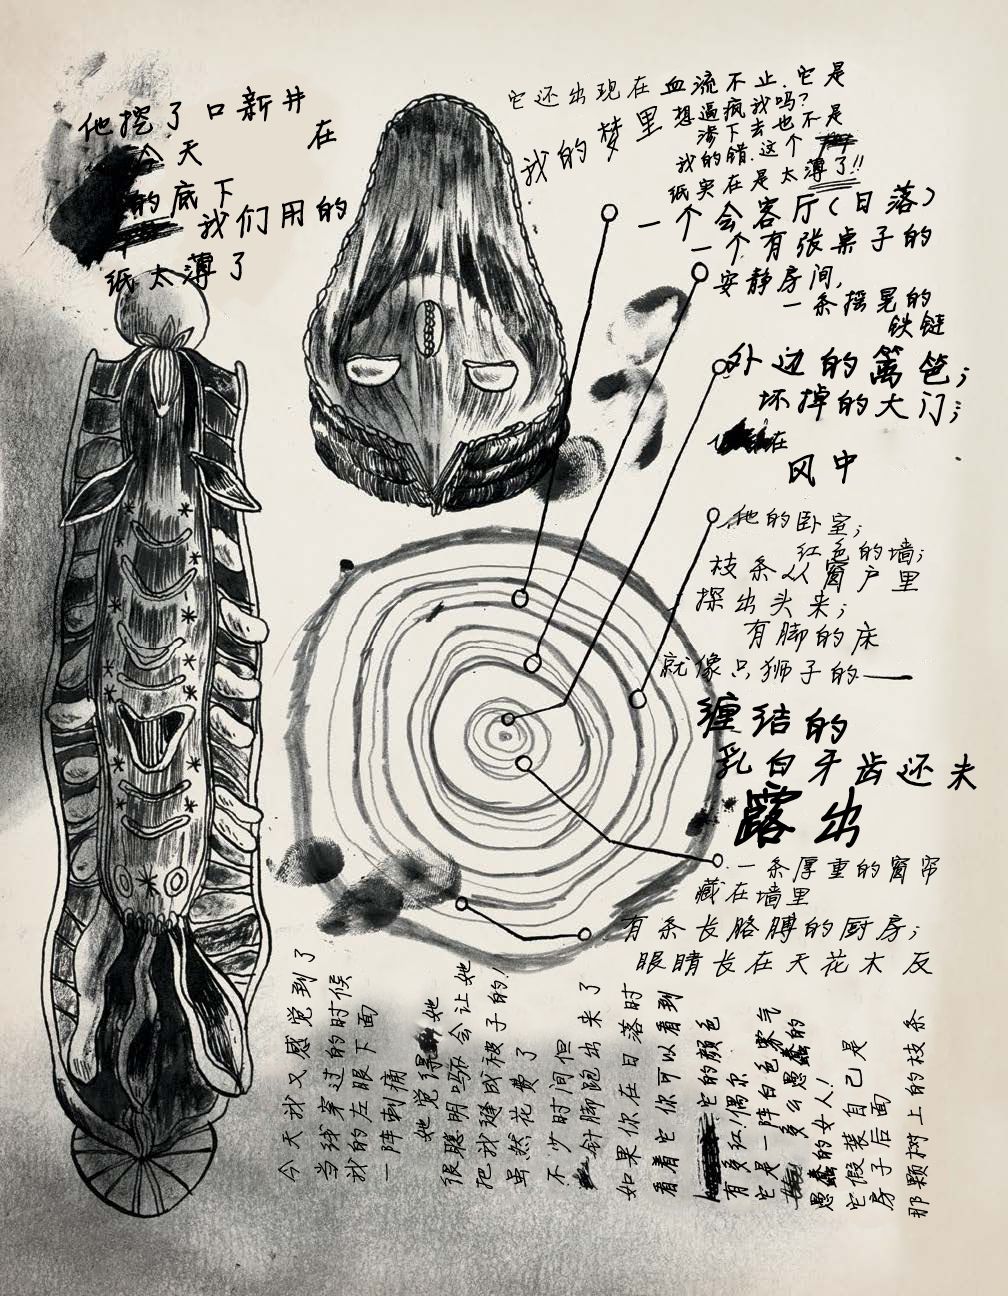 他挖了口新井
今天 在
的底下
我们用的
纸太薄了
它还出现在
我的梦里
血流不止.它是
想逼疯我吗?
渗下去也不是
我的错.这个
纸实在是太薄了!!
一个会客厅(日落)
一个有张桌子的
安静房间,
一条摇晃的
铁链
外边的篱笆;
坏掉的大门;
在
风中
他的卧室;
红色的墙;
枝条从窗户里
探出头来;
有脚的床
就像只狮子的——
缠结的
乳白牙齿还未
露出
一条厚重的窗帘
藏在墙里
有条长胳膊的厨房;
眼睛长在天花木反
今天我又感觉到了
当线穿过的时候
我的左眼下面
一阵刺痛
她觉得 她
很聪明吗?你会让她
把我缝成被子的!
虽然花费了
不少时间但
针脚跑出来了
如果你在日落时
看着它你可以看到
它的颜色
有多红!偶尔
它是一阵白色雾气
多么愚蠢的
愚蠢的女人!
它假装自己是
房子后面
那颗树上的枝条